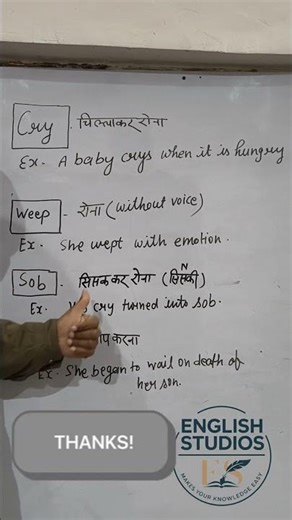 Cry - चिल्लाकर रोना
Ex. A baby crys when it is hungry
Weep - रोना (without voice)
Ex. She wept with emotion.
Sob - सिसककर रोना (सिसकी) N
Ex. cry turned into sob.
करना
Ex. She began to wail on death of
her son.
THANKS!
ENGLISH
STUDIOS
ES
MAKES YOUR KNOWLEDGE EASY